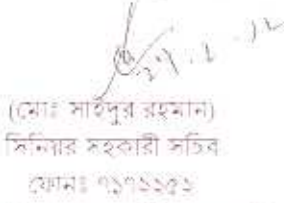 (মোঃ সাইদুর রহমান)
সিনিয়র সহকারী সচিব
ফোনঃ ৭১৭১১৫১